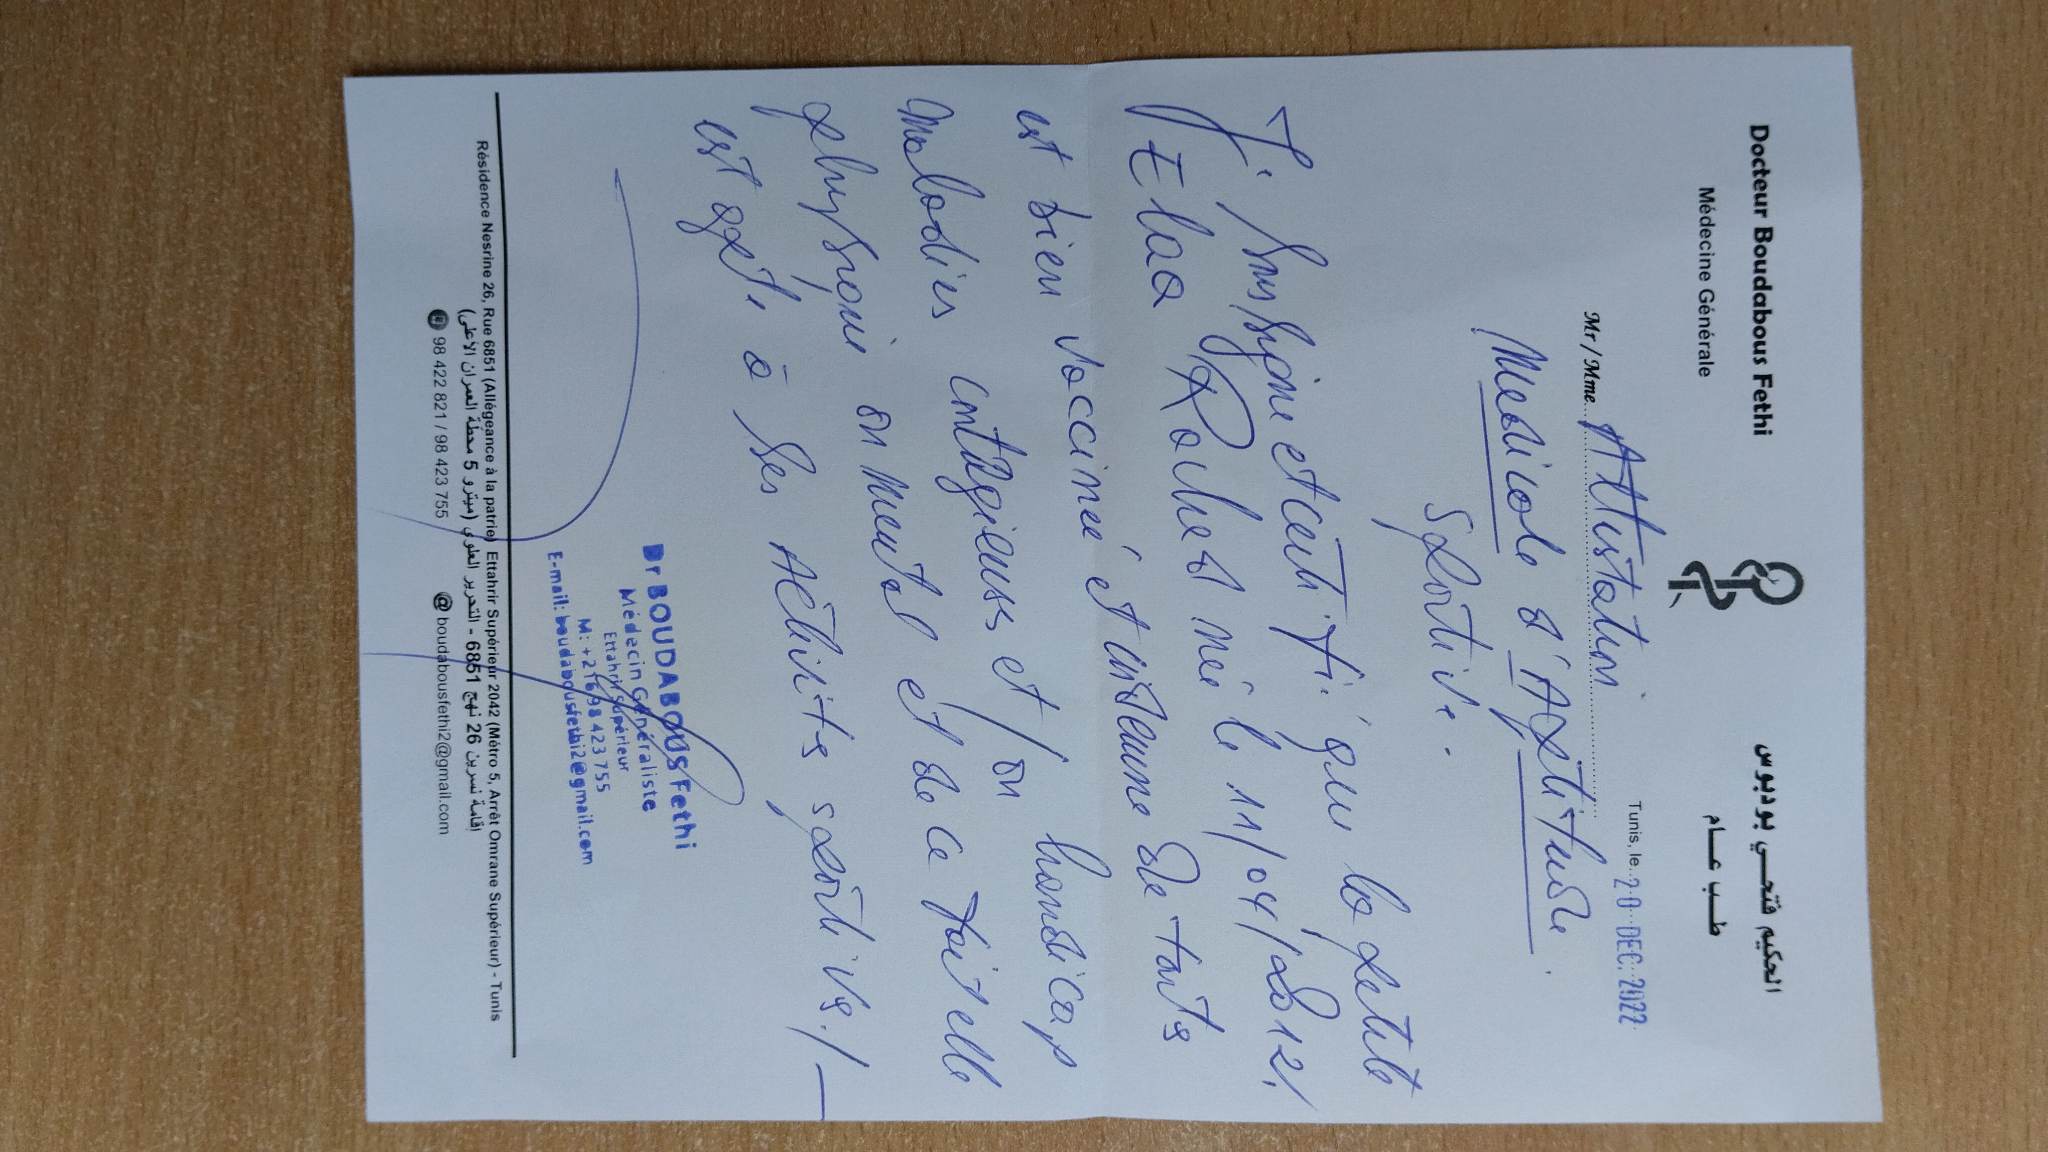 Docteur Boudabous Fethi
Médecine Générale
الحكيم فتحي بودبوس
طب عام
Tunis, le 20 DEC. 2022
Mr / Mme Attestation
Medicale d'Aptitude
Sportive.
Je soussigne et certifie que la petite
Elaa née le 11/04/2012,
est bien vaccinée et indemne de touts
Maladies contagieuses et/ou handicap
physique ou mental et de ce fait elle
est apte à ses Activités sportives./_
Dr BOUDABOUS Fethi
Médecin Généraliste
Ettahrir Supérieur
M: +216 98 423 755
E-mail: boudabousfethi2@gmail.com
Résidence Nesrine 26, Rue 6851 (Allégeance à la patrie) Ettahrir Supérieur 2042 (Métro 5, Arrêt Omrane Supérieur) - Tunis
اقامة نسرين 26 نهج 6851 - التحرير العلوي (ميترو 5 محطة العمران الأعلى)
98 422 821 / 98 423 755 @ boudabousfethi2@gmail.com